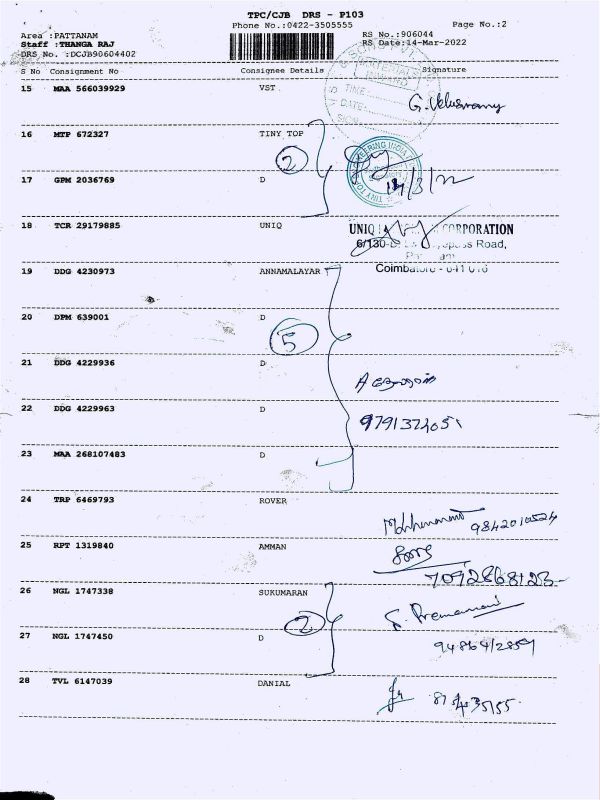 TPC/CJB DRS - P103
Phone No.:0422-3505555
Page No.:2
Area :PATTANAM
RS No.:906044
Staff :THANGA RAJ
RS Date:14-Mar-2022
DRS No. :DCJB90604402
S No Consignment No Consignee Details Signature
15 MAA 566039929 VST
G. Veluswamy
TIME:
DATE:
SIGN:
16 MTP 672327 TINY TOP
2
14/3/22
17 GPM 2036769 D
18 TCR 29179885 UNIQ
UNIQ CORPORATION
6/130- Road,
Coimbatore - 641 016
19 DDG 4230973 ANNAMALAYAR
20 DPM 639001 D
5
21 DDG 4229936 D
22 DDG 4229963 D
23 MAA 268107483 D
24 TRP 6469793 ROVER
9842010524
25 RPT 1319840 AMMAN
7092868123
26 NGL 1747338 SUKUMARAN
2
27 NGL 1747450 D
28 TVL 6147039 DANIAL